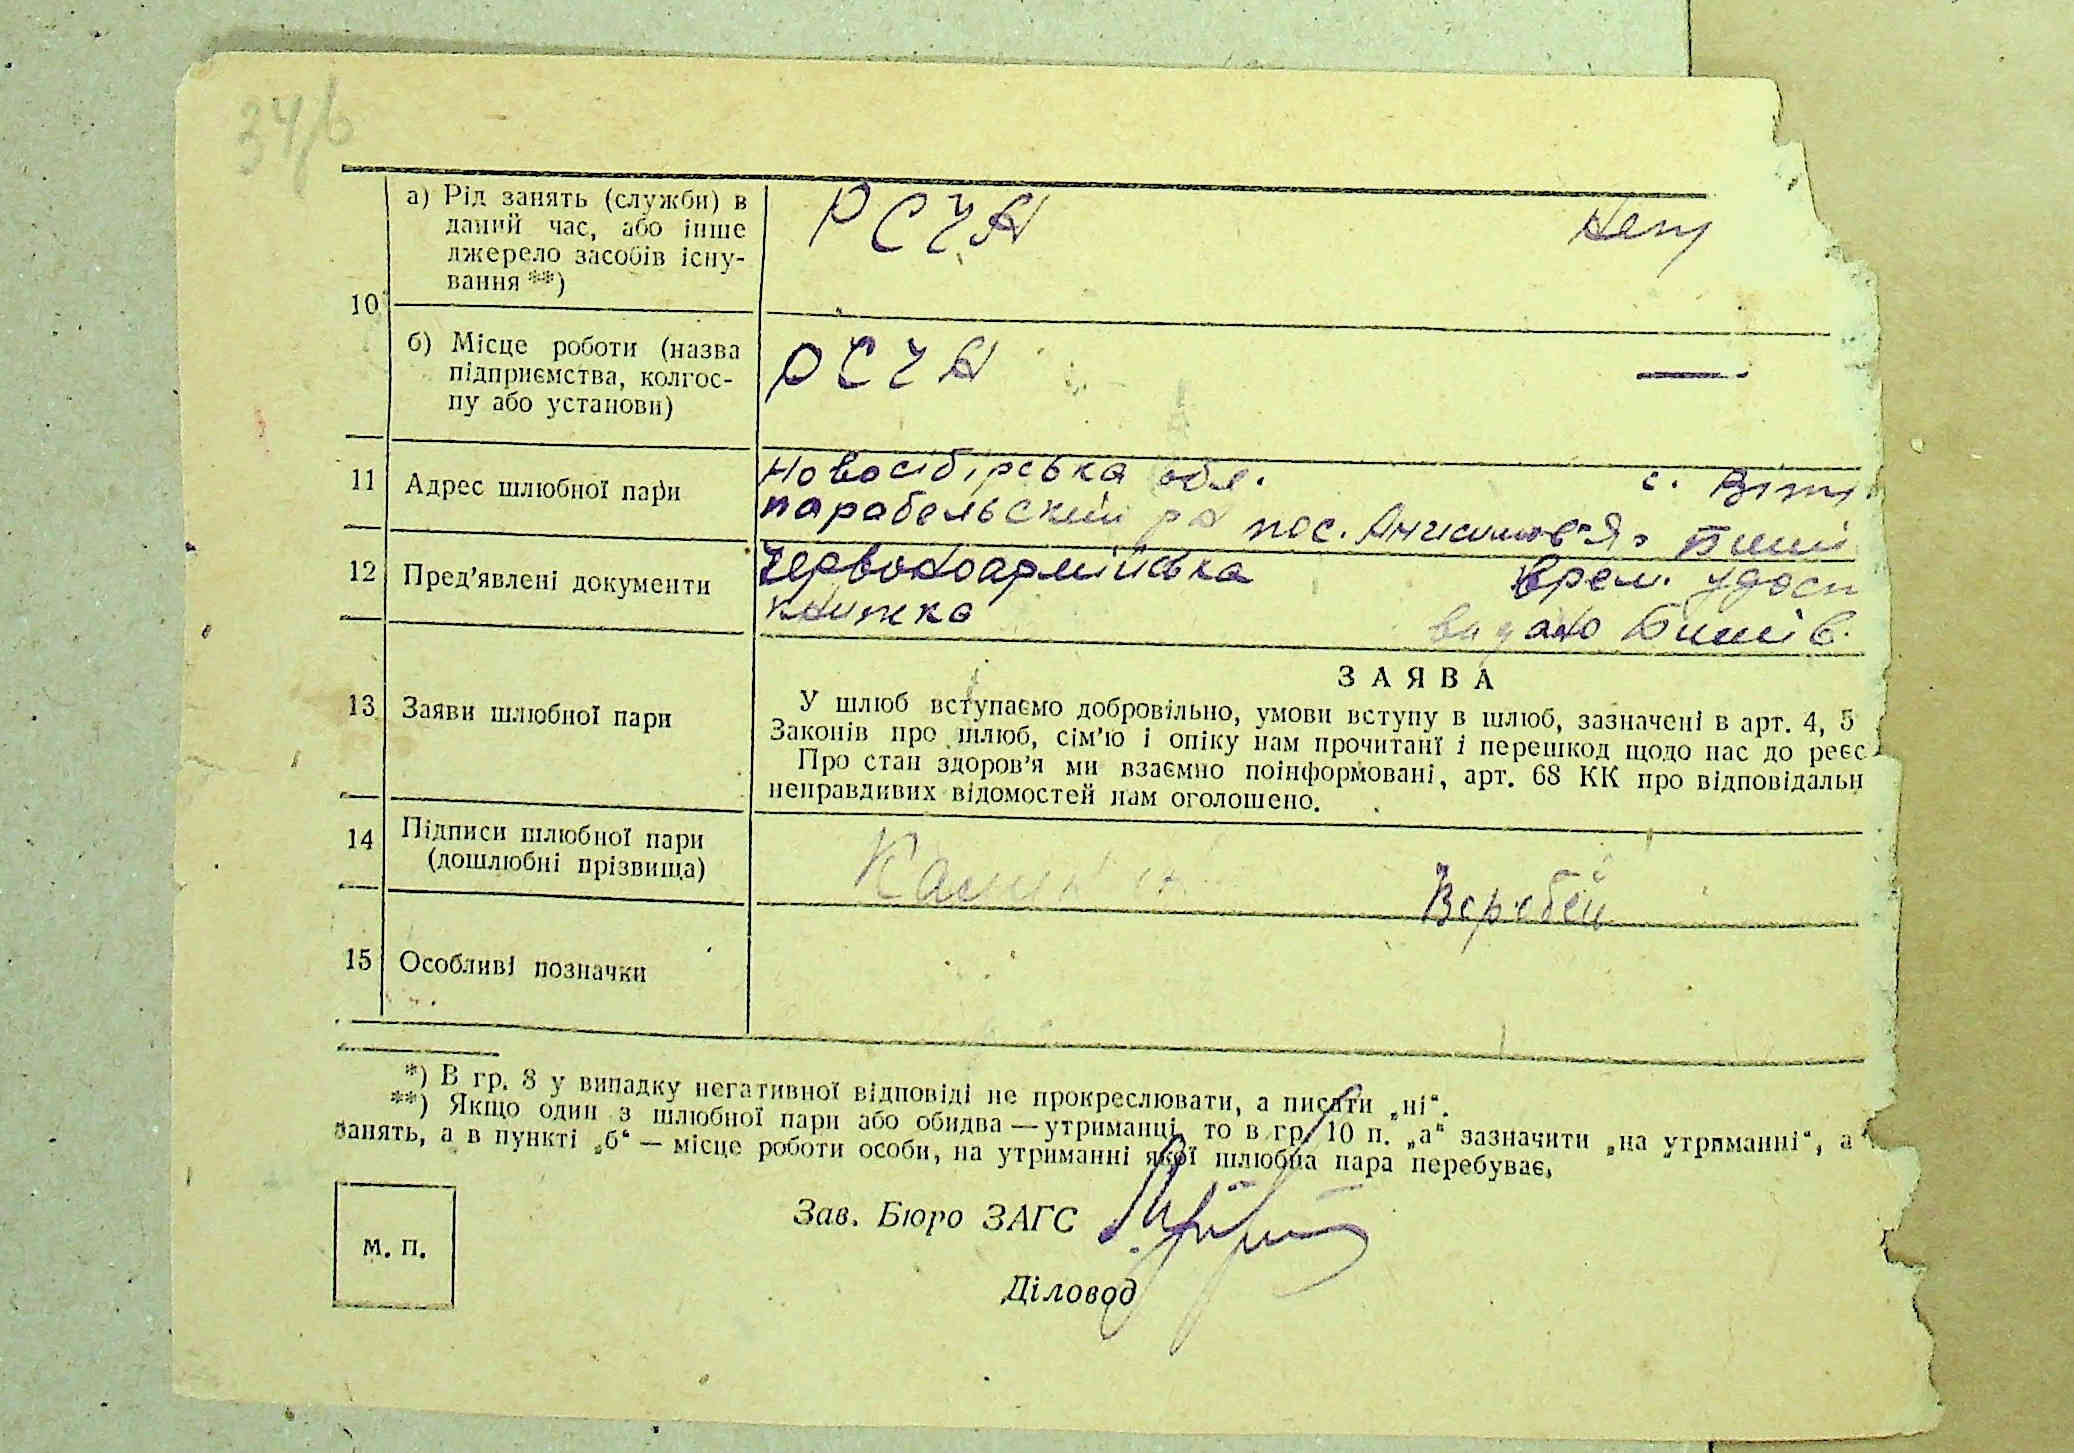 34/6
а) Рід занять (служби) в
даний час, або інше
джерело засобів існу-
вання **)
РСЧА
10
б) Місце роботи (назва
підприємства, колгос-
пу або установи)
РСЧА
—
11 Адрес шлюбної пари
Новосібірська обл. с.
Парабельский пос.
12 Пред'явлені документи
Червоноармійська
книжка
Врем. удост
видано
13 Заяви шлюбної пари
ЗАЯВА
У шлюб вступаємо добровільно, умови вступу в шлюб, зазначені в арт. 4, 5
Законів про шлюб, сім'ю і опіку нам прочитані і перешкод щодо нас до реєс
Про стан здоров'я ми взаємно поінформовані, арт. 68 КК про відповідальн
неправдивих відомостей нам оголошено.
14 Підписи шлюбної пари
(дошлюбні прізвища)
Веребей
15 Особливі позначки
*) В гр. 8 у випадку негативної відповіді не прокреслювати, а писати „ні“.
**) Якщо один з шлюбної пари або обидва — утриманці, то в гр. 10 п. „а“ зазначити „на утриманні“, а
занять, а в пункті „б“ — місце роботи особи, на утриманні якої шлюбна пара перебуває,
М. П.
Зав. Бюро ЗАГС
Діловод